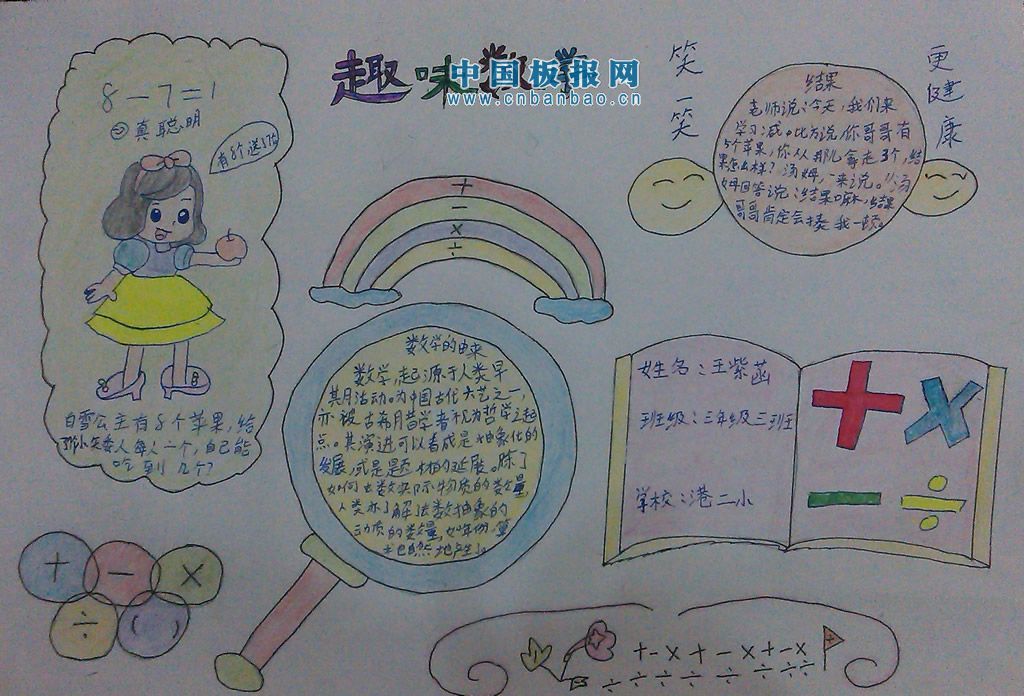 趣味数学
中国板报网
www.cnbanbao.cn
8-7=1
真聪明
有8个送7个
白雪公主有8个苹果,给
7个小矮人每人一个,自己能
吃到几个?
+
-
×
÷
笑一笑
更健康
结果
老师说:今天,我们来
学习减。比方说,你哥哥有
5个苹果,你从那儿拿走3个,结
果怎么样?汤姆,来说。"汤
姆回答说:结果嘛,结果
哥哥肯定会揍我一顿。
数学的由来
数学,起源于人类早
期活动。为中国古代六艺之一,
亦被古希腊学者视为哲学之起
点。其演进可以看成是抽象化的
发展,或是题材的延展。除了
如何去数实际物质的数量
人类亦了解去数抽象的
物质的数量,如年份
姓名:王紫菡
班级:三年级三班
学校:港二小
+ ×
- ÷
+ - ×
÷ ( )
+-×+-×+-×
÷÷÷÷÷÷÷÷